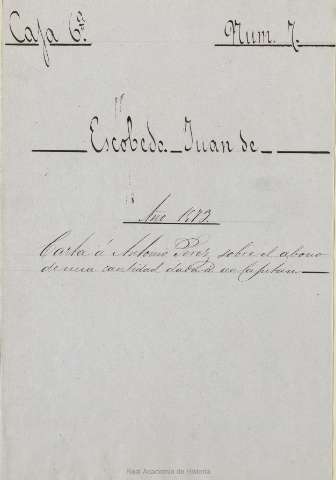 Caja 6ª Num. 7.
Escobedo Juan de
Año 1573
Carta á Antonio Perez, sobre el abono
de una cantidad dada á un Capitan
Real Academia de Historia